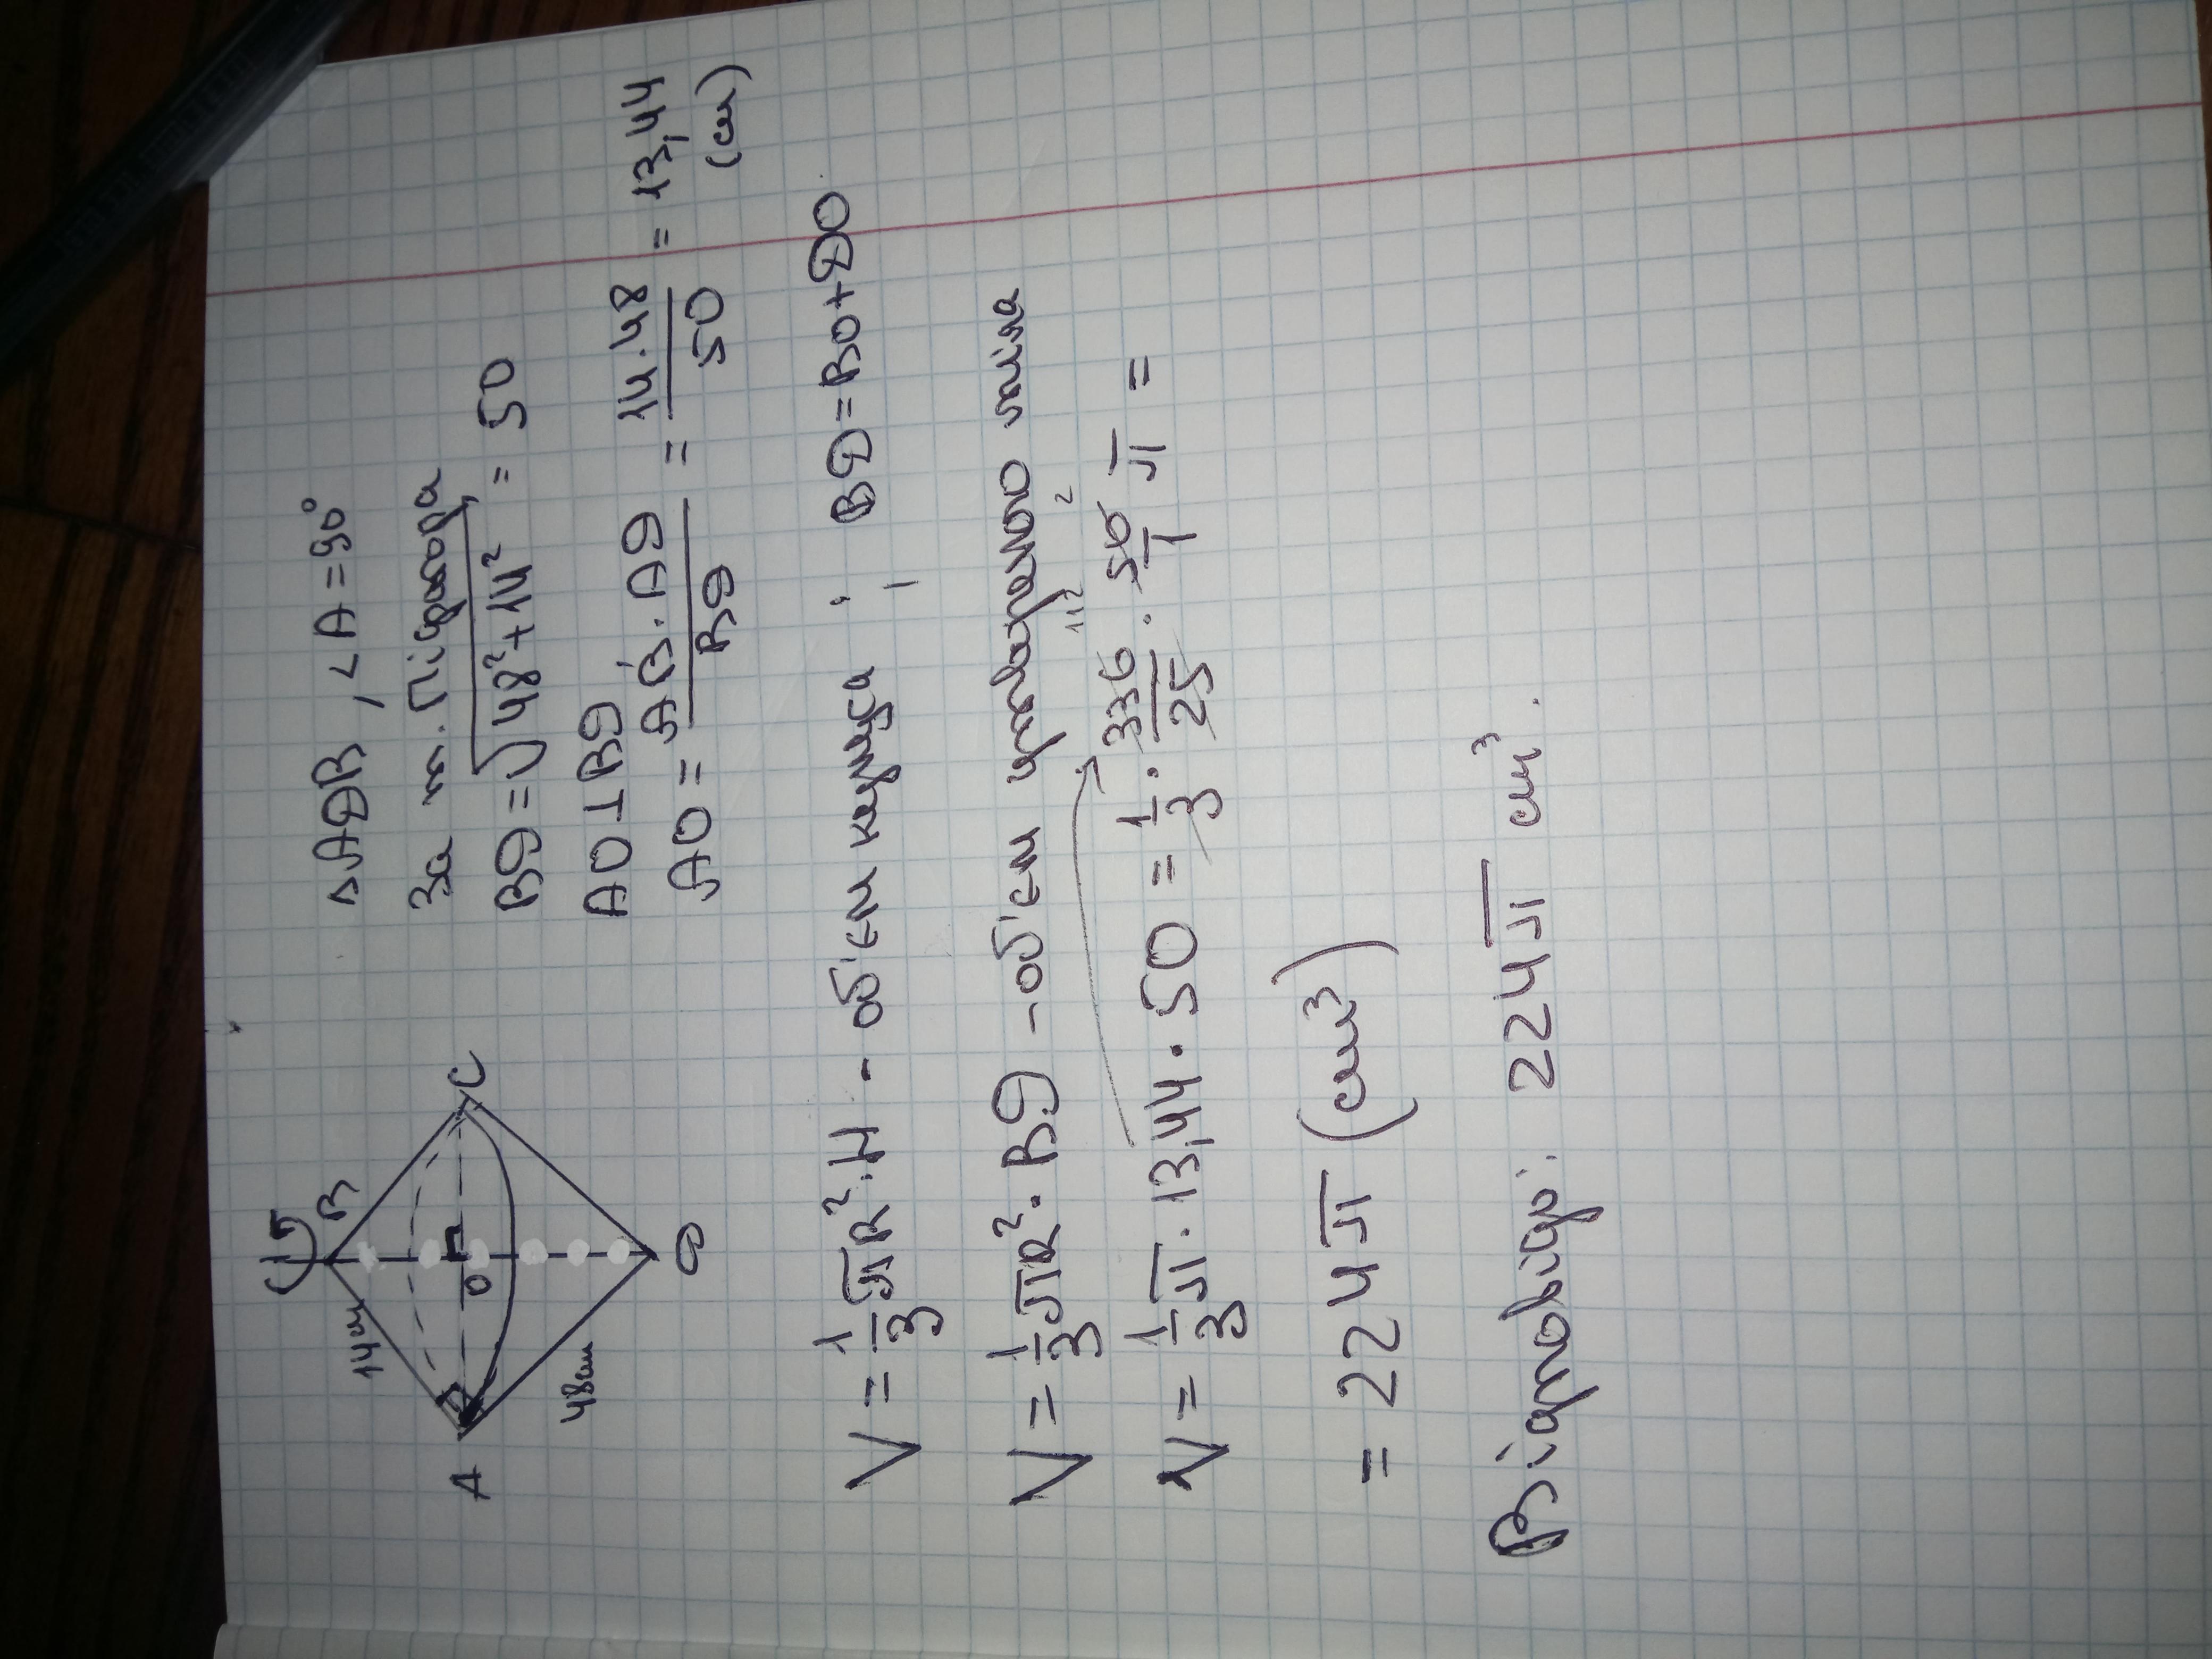 B
14см
A
O
C
48см
D
△ADB, ∠A = 90°
За т. Піфагора
BD = √48² + 14² = 50
AO ⊥ BD
AO = AB · AD / BD = 14 · 48 / 50 = 13,44 (см)
V = 1/3 πR² · H - об'єм конуса ; BD = BO + DO
V = 1/3 πR² · BD - об'єм утвореного тіла
V = 1/3 π · 13,44 · 50 = 1/3 · 336/25 · 50/1 π =
112 2
= 224π (см³)
Відповідь: 224π см³.